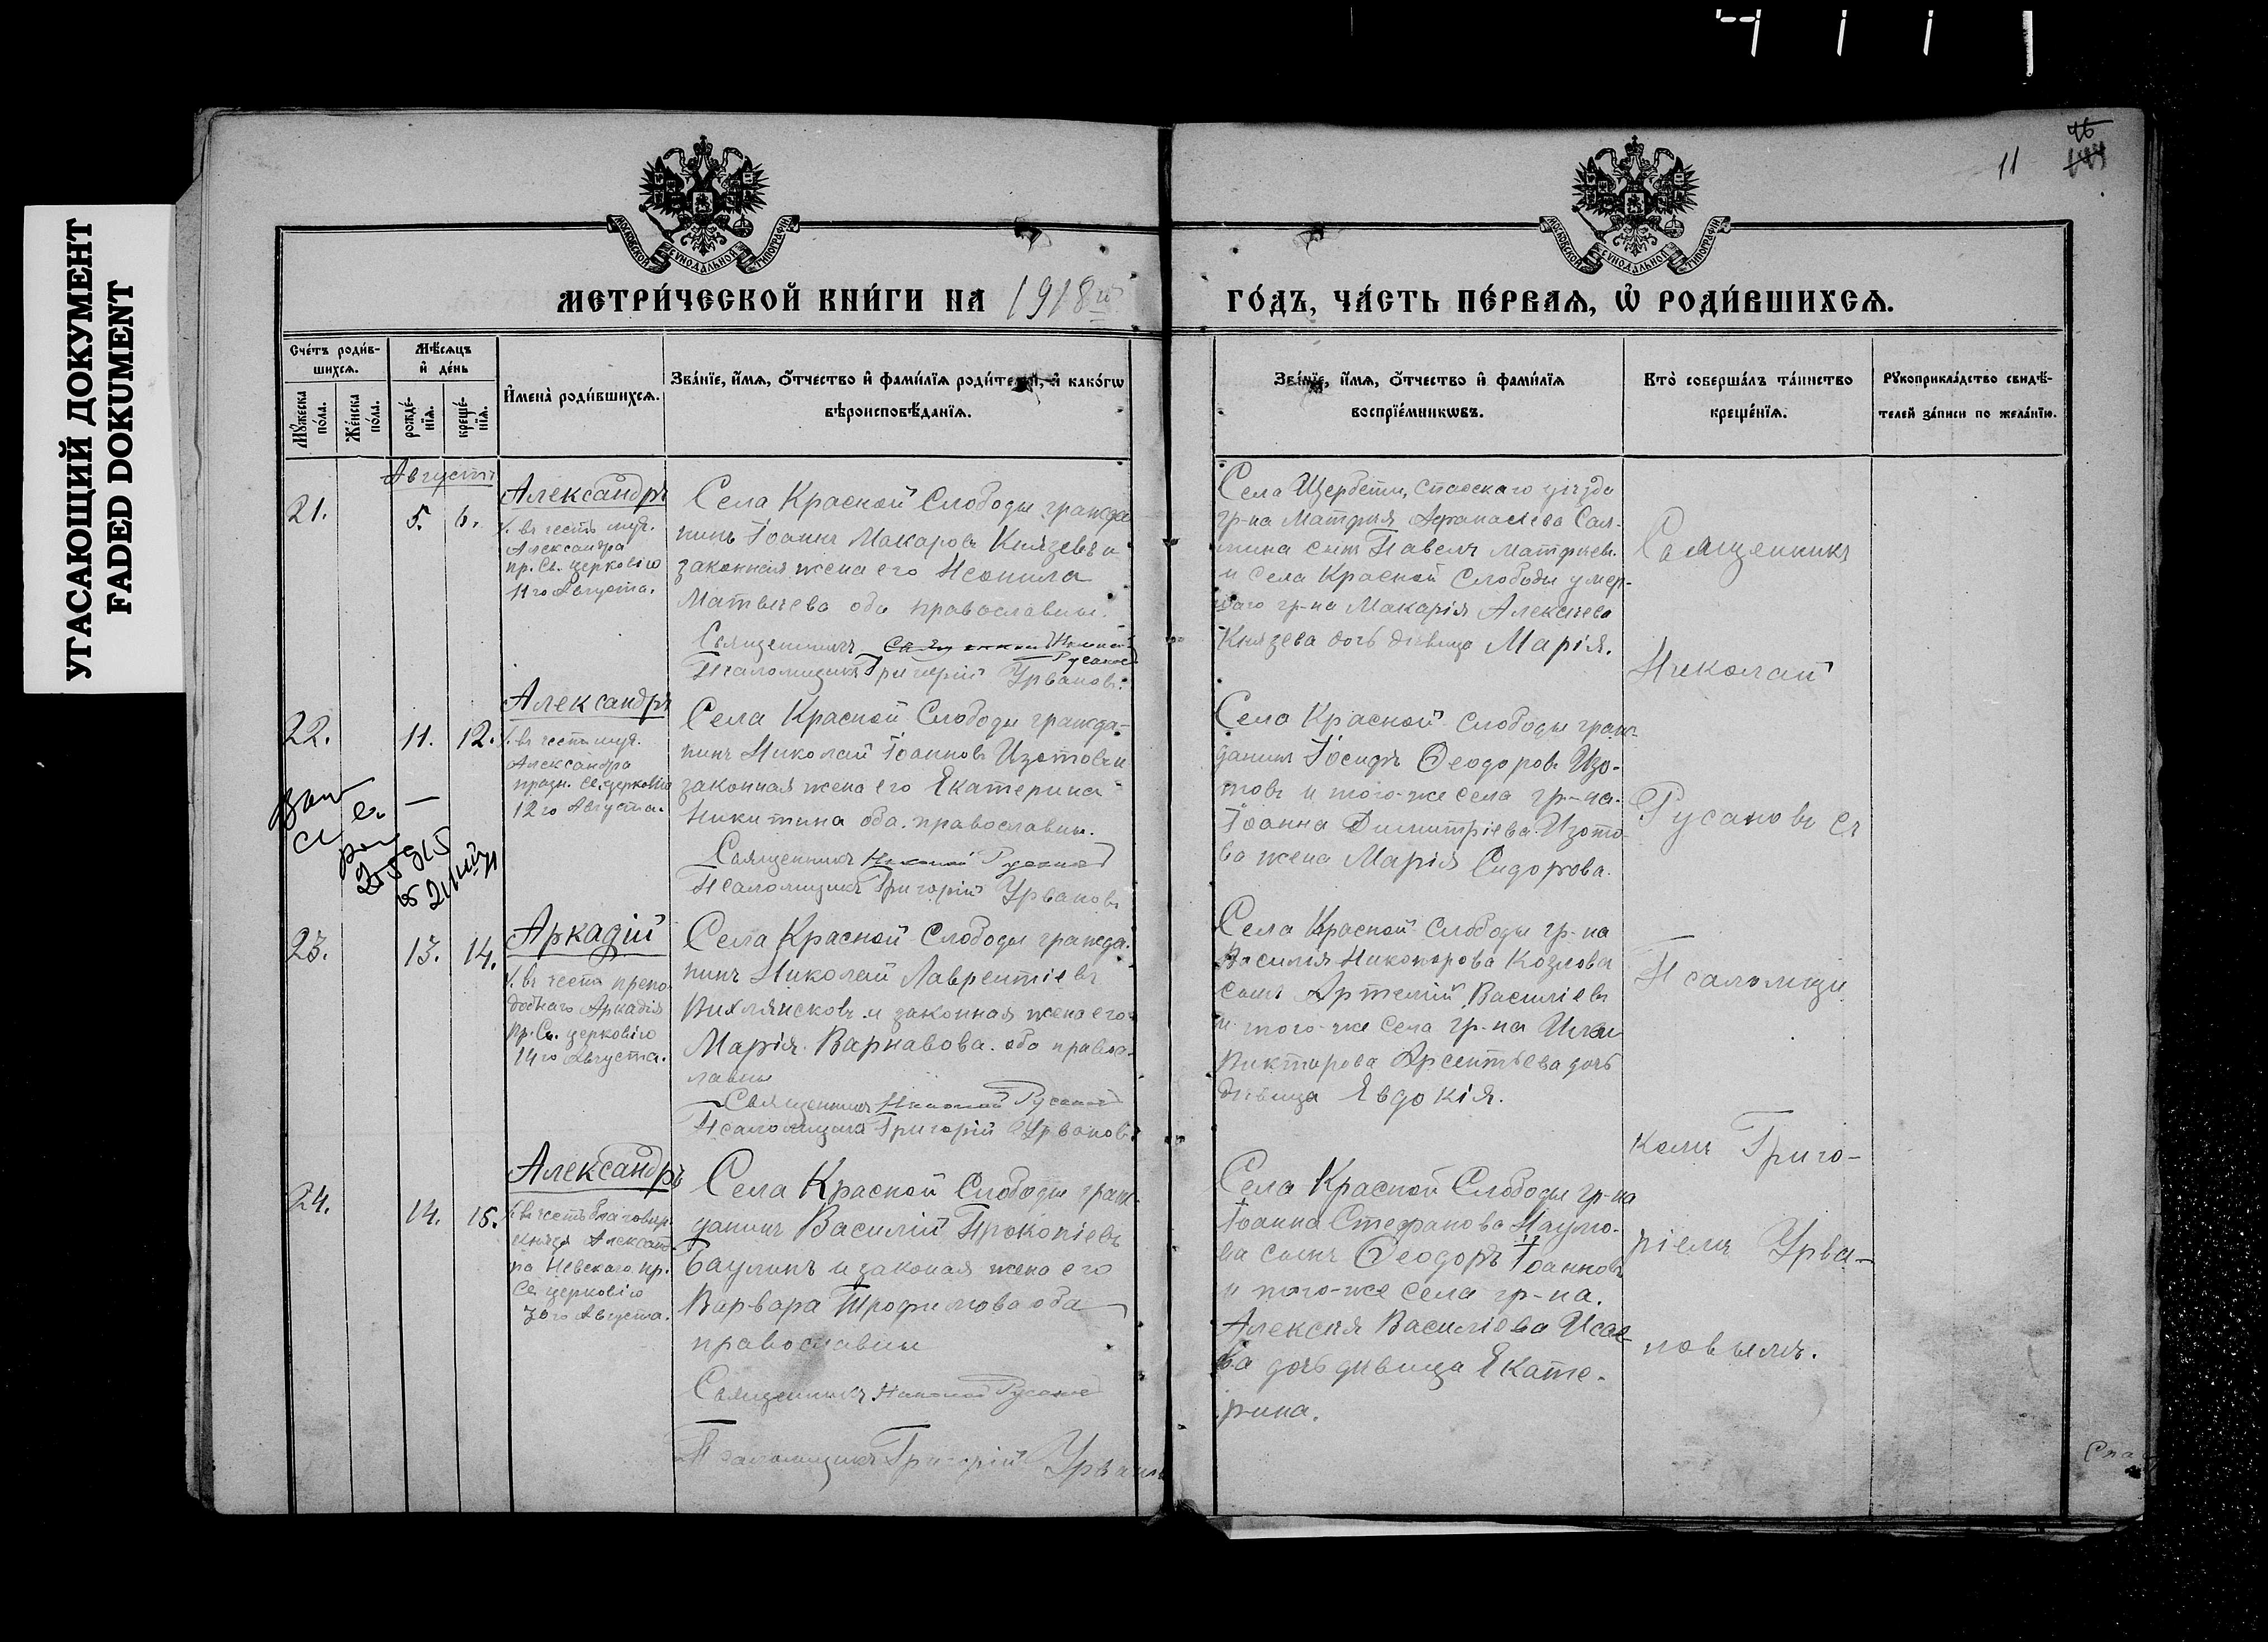 УГАСАЮЩИЙ ДОКУМЕНТ
FADED DOKUMENT
11
МОСКОВСКОЙ СѴНОДАЛЬНОЙ ТИПОГРАФІИ
МОСКОВСКОЙ СѴНОДАЛЬНОЙ ТИПОГРАФІИ
МЕТРИ́ЧЕСКОЙ КНИ́ГИ НА 1918й
ГО́ДЪ, ЧА́СТЬ ПЕ́РВАѦ, Ѿ РОДИ́ВШИХСѦ.
Сче́тъ роди́в-
шихсѧ.
Мѣ́сѧцъ
и҆ де́нь
Мꙋ́жеска
по́ла.
Же́нска
по́ла.
рожде́-
нїѧ.
креще́-
нїѧ.
И҆мена̀ роди́вшихсѧ.
Зва́нїе, и҆́мѧ, ѻ҆́тчество и҆ фами́лїѧ роди́телей, и҆ како́гѡ
вѣроисповѣ́данїѧ.
Зва́нїе, и҆́мѧ, ѻ҆́тчество и҆ фами́лїѧ
воспрїе́мникѡвъ.
Кто̀ соверша́лъ та́инство
креще́нїѧ.
Рꙋкоприкла́дство свидѣ́-
телей за́писи по жела́нїю.
Августъ
21.
5. 6.
Александръ
въ честь муч.
Александра
пр. Св. церковію
11го Августа.
Села Красной Слободы гражда
нинъ Іоаннъ Макаровъ Князевъ и
законная жена его Неонила
Матвѣева оба православны.
Священникъ Николай
Русановъ
Псаломщикъ Григорій Урвановъ.
Села Щербети, Спасскаго уѣзда
гр-на Матфія Афанасіева Сал-
кина сынъ Павелъ Матфіевъ.
и села Красной Слободы умер-
шаго гр-на Макарія Алексѣева
Князева дочь дѣвица Марія.
22.
11. 12.
Александръ
въ честь муч.
Александра
празн. Св. церковію
12го Августа.
Села Красной Слободы гражда-
нинъ Николай Іоанновъ Изотовъ и
законная жена его Екатерина
Никитина оба православны.
Священникъ Николай Русановъ
Псаломщикъ Григорій Урвановъ
Села Красной Слободы граж-
данинъ Іосифъ Ѳеодоровъ Изо-
товъ и того-же села гр-на
Іоанна Димитріева Изото-
ва жена Марія Сидорова.
23.
13. 14.
Аркадій
въ честь препо
добнаго Аркадія
пр. Св. церковію
14го Августа.
Села Красной Слободы гражда-
нинъ Николай Лаврентіевъ
Вихлянсковъ и законная жена его
Марія Варнавова оба правос-
лавны
Священникъ Николай Русановъ
Псаломщикъ Григорій Урвановъ
Села Красной Слободы гр-на
Василія Никонорова Козлова
сынъ Артемій Василіевъ
и того-же села гр-на
Виктирова Арсентьева дочь
дѣвица Евдокія.
24.
14. 15.
Александръ
въ честь благовѣр.
князя Александ
ра Невскаго пр.
Св. церковію
30го Августа.
Села Красной Слободы граж-
данинъ Василій Прокопіевъ
Баулинъ и законая жена его
Варвара Трофимова оба
православны
Священникъ Николай Русановъ
Псаломщикъ Григорій Урвановъ
Села Красной Слободы гр-на
Іоанна Стефанова Наумо-
ва сынъ Ѳеодоръ Іоанновъ
и того-же села гр-на.
Алексія Василіева Исае
ва дочь дѣвица Екате-
рина.
Священникъ
Николай
Русановъ съ
Псаломщи
комъ Григо-
ріемъ Урва-
новымъ.